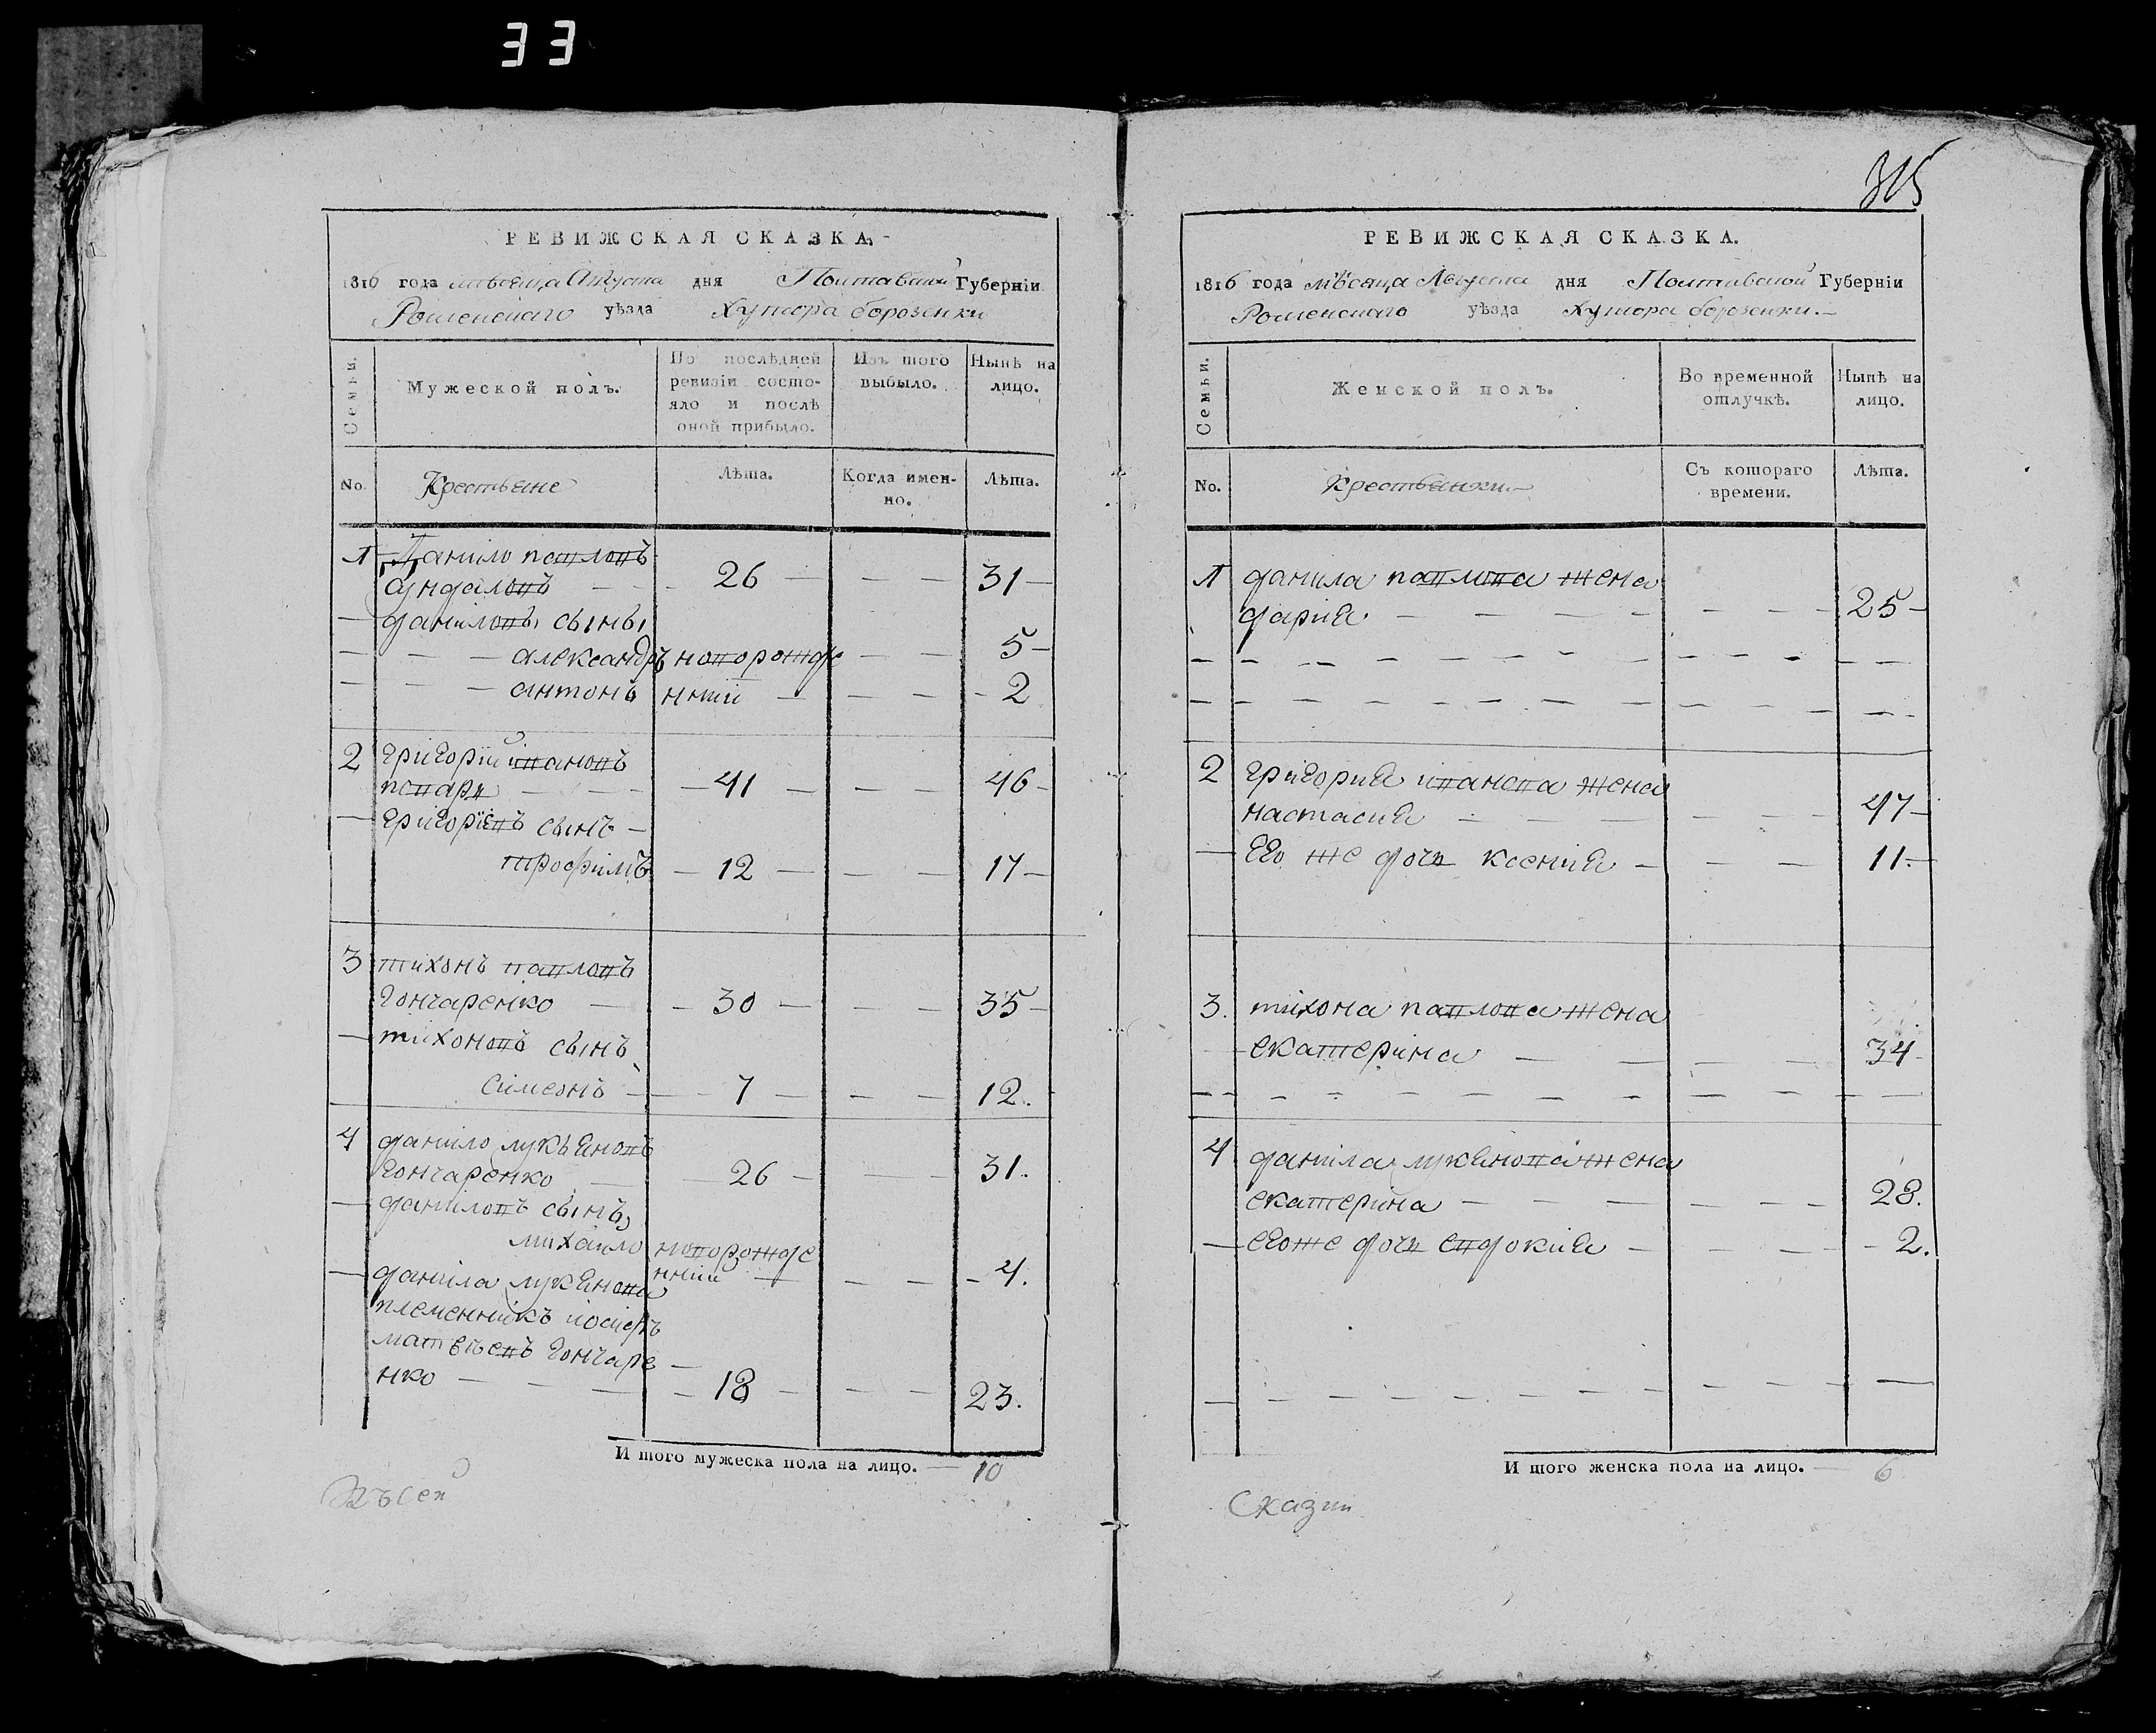 33
315
РЕВИЖСКАЯ СКАЗКА.
1816 года мѣсяца Августа дня Полтавской Губерніи
Роменскаго уѣзда Хутора борозенки
Семьи.
Мужеской полъ.
По послѣдней ревизіи состояло и послѣ оной прибыло.
Изъ того выбыло.
Нынѣ на лицо.
No.
Крестьяне
Лѣта.
Когда именно.
Лѣта.
1 Данило павловъ
26 31
даниловы сыны
александръ новорожде 5
антонъ нний 2
2 григорий ивановъ
41 46
григориевъ сынъ
трофимъ 12 17
3 тихонъ павловъ
гончаренко 30 35
тихоновъ сынъ
симеонъ 7 12.
4 данило лукьяновъ
гончаренко 26 31.
даниловъ сынъ
михайло новорожде
нний 4.
данила лукянова
племенникъ иосифъ
матвѣевъ гончаре
нко 18 23.
И того мужеска пола на лицо. 10
РЕВИЖСКАЯ СКАЗКА.
1816 года мѣсяца Августа дня Полтавской Губерніи
Роменскаго уѣзда Хутора борозенки.
Семьи.
Женской полъ.
Во временной отлучкѣ.
Нынѣ на лицо.
No.
Крестьянки
Съ котораго времени.
Лѣта.
1 данила павлова жена
дария 25
2 григория ивановa жена
настасия 47
Его же дочь ксения 11.
3. тихона павлова жена
екатерина 34
4 данила лукянова жена
екатерина 28.
егоже дочь евдокия 2.
И того женска пола на лицо. 6
Сказки